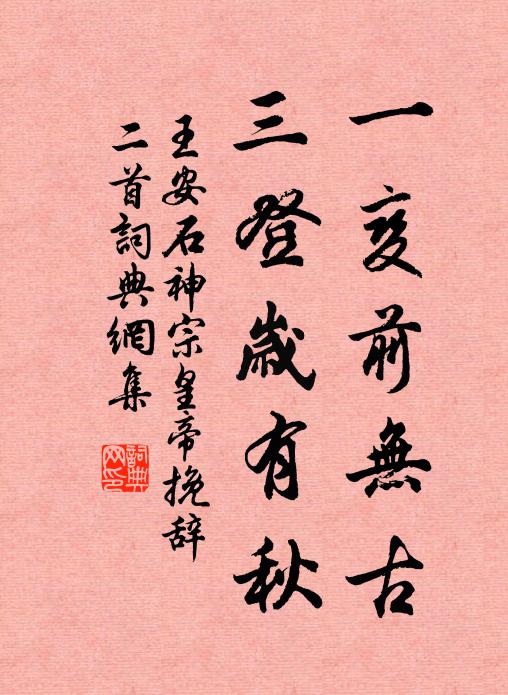 一变前無古
三登歲有秋
王安石神宗皇帝挽辞
二首詞典網集
詞典网印